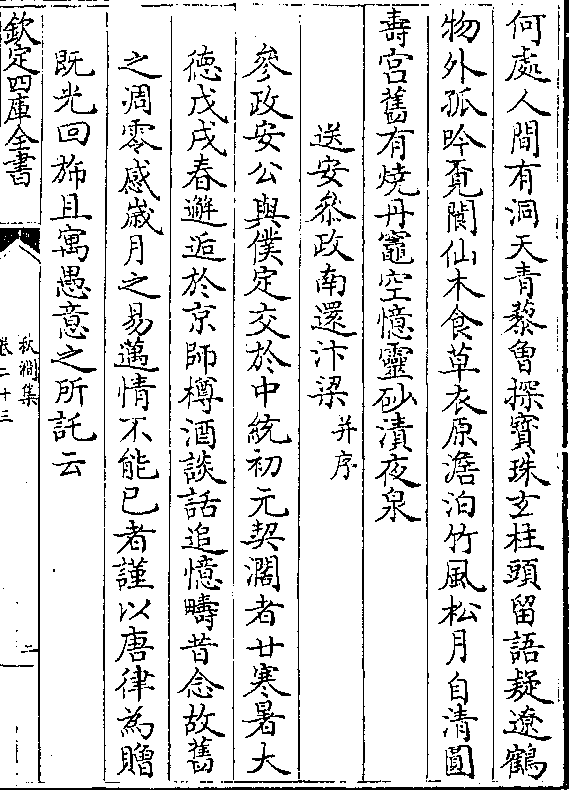 何處人間有洞天青藜曽探寳珠玄柱頭留語疑遼鶴
物外孤吟覓閬仙木食草衣原澹泊竹風松月自清圓
壽宫舊有燒丹竈空憶靈砂漬夜泉
送安叅政南還汴梁并序
參政安公與僕定交於中統初元契濶者廿寒暑大
徳戊戌春邂逅於京師樽酒談話追憶疇昔念故舊
之凋零感嵗月之易邁情不能已者謹以唐律為贈
既光回斾且寓愚意之所託云
欽定四庫全書
秋澗集
卷二十三
二